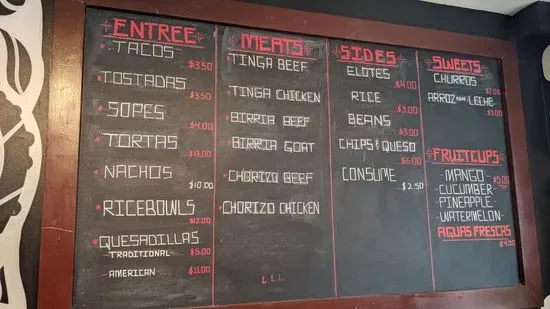 ENTREE
TACOS
$3.50
TOSTADAS
$3.50
SOPES
$4.00
TORTAS
$13.00
NACHOS
$10.00
RICEBOWLS
$12.00
QUESADILLAS
TRADITIONAL $5.00
AMERICAN $11.00
MEATS
TINGA BEEF
TINGA CHICKEN
BIRRIA BEEF
BIRRIA GOAT
CHORIZO BEEF
CHORIZO CHICKEN
LLL
SIDES
ELOTES
$4.00
RICE
$3.00
BEANS
$3.00
CHIPS & QUESO
$6.00
CONSUME $2.50
SWEETS
CHURROS
ARROZ CON LECHE
$3.00
FRUITCUPS
MANGO $5.00
-CUCUMBER-
PINEAPPLE
-WATERMELON-
AGUAS FRESCAS
$4.00